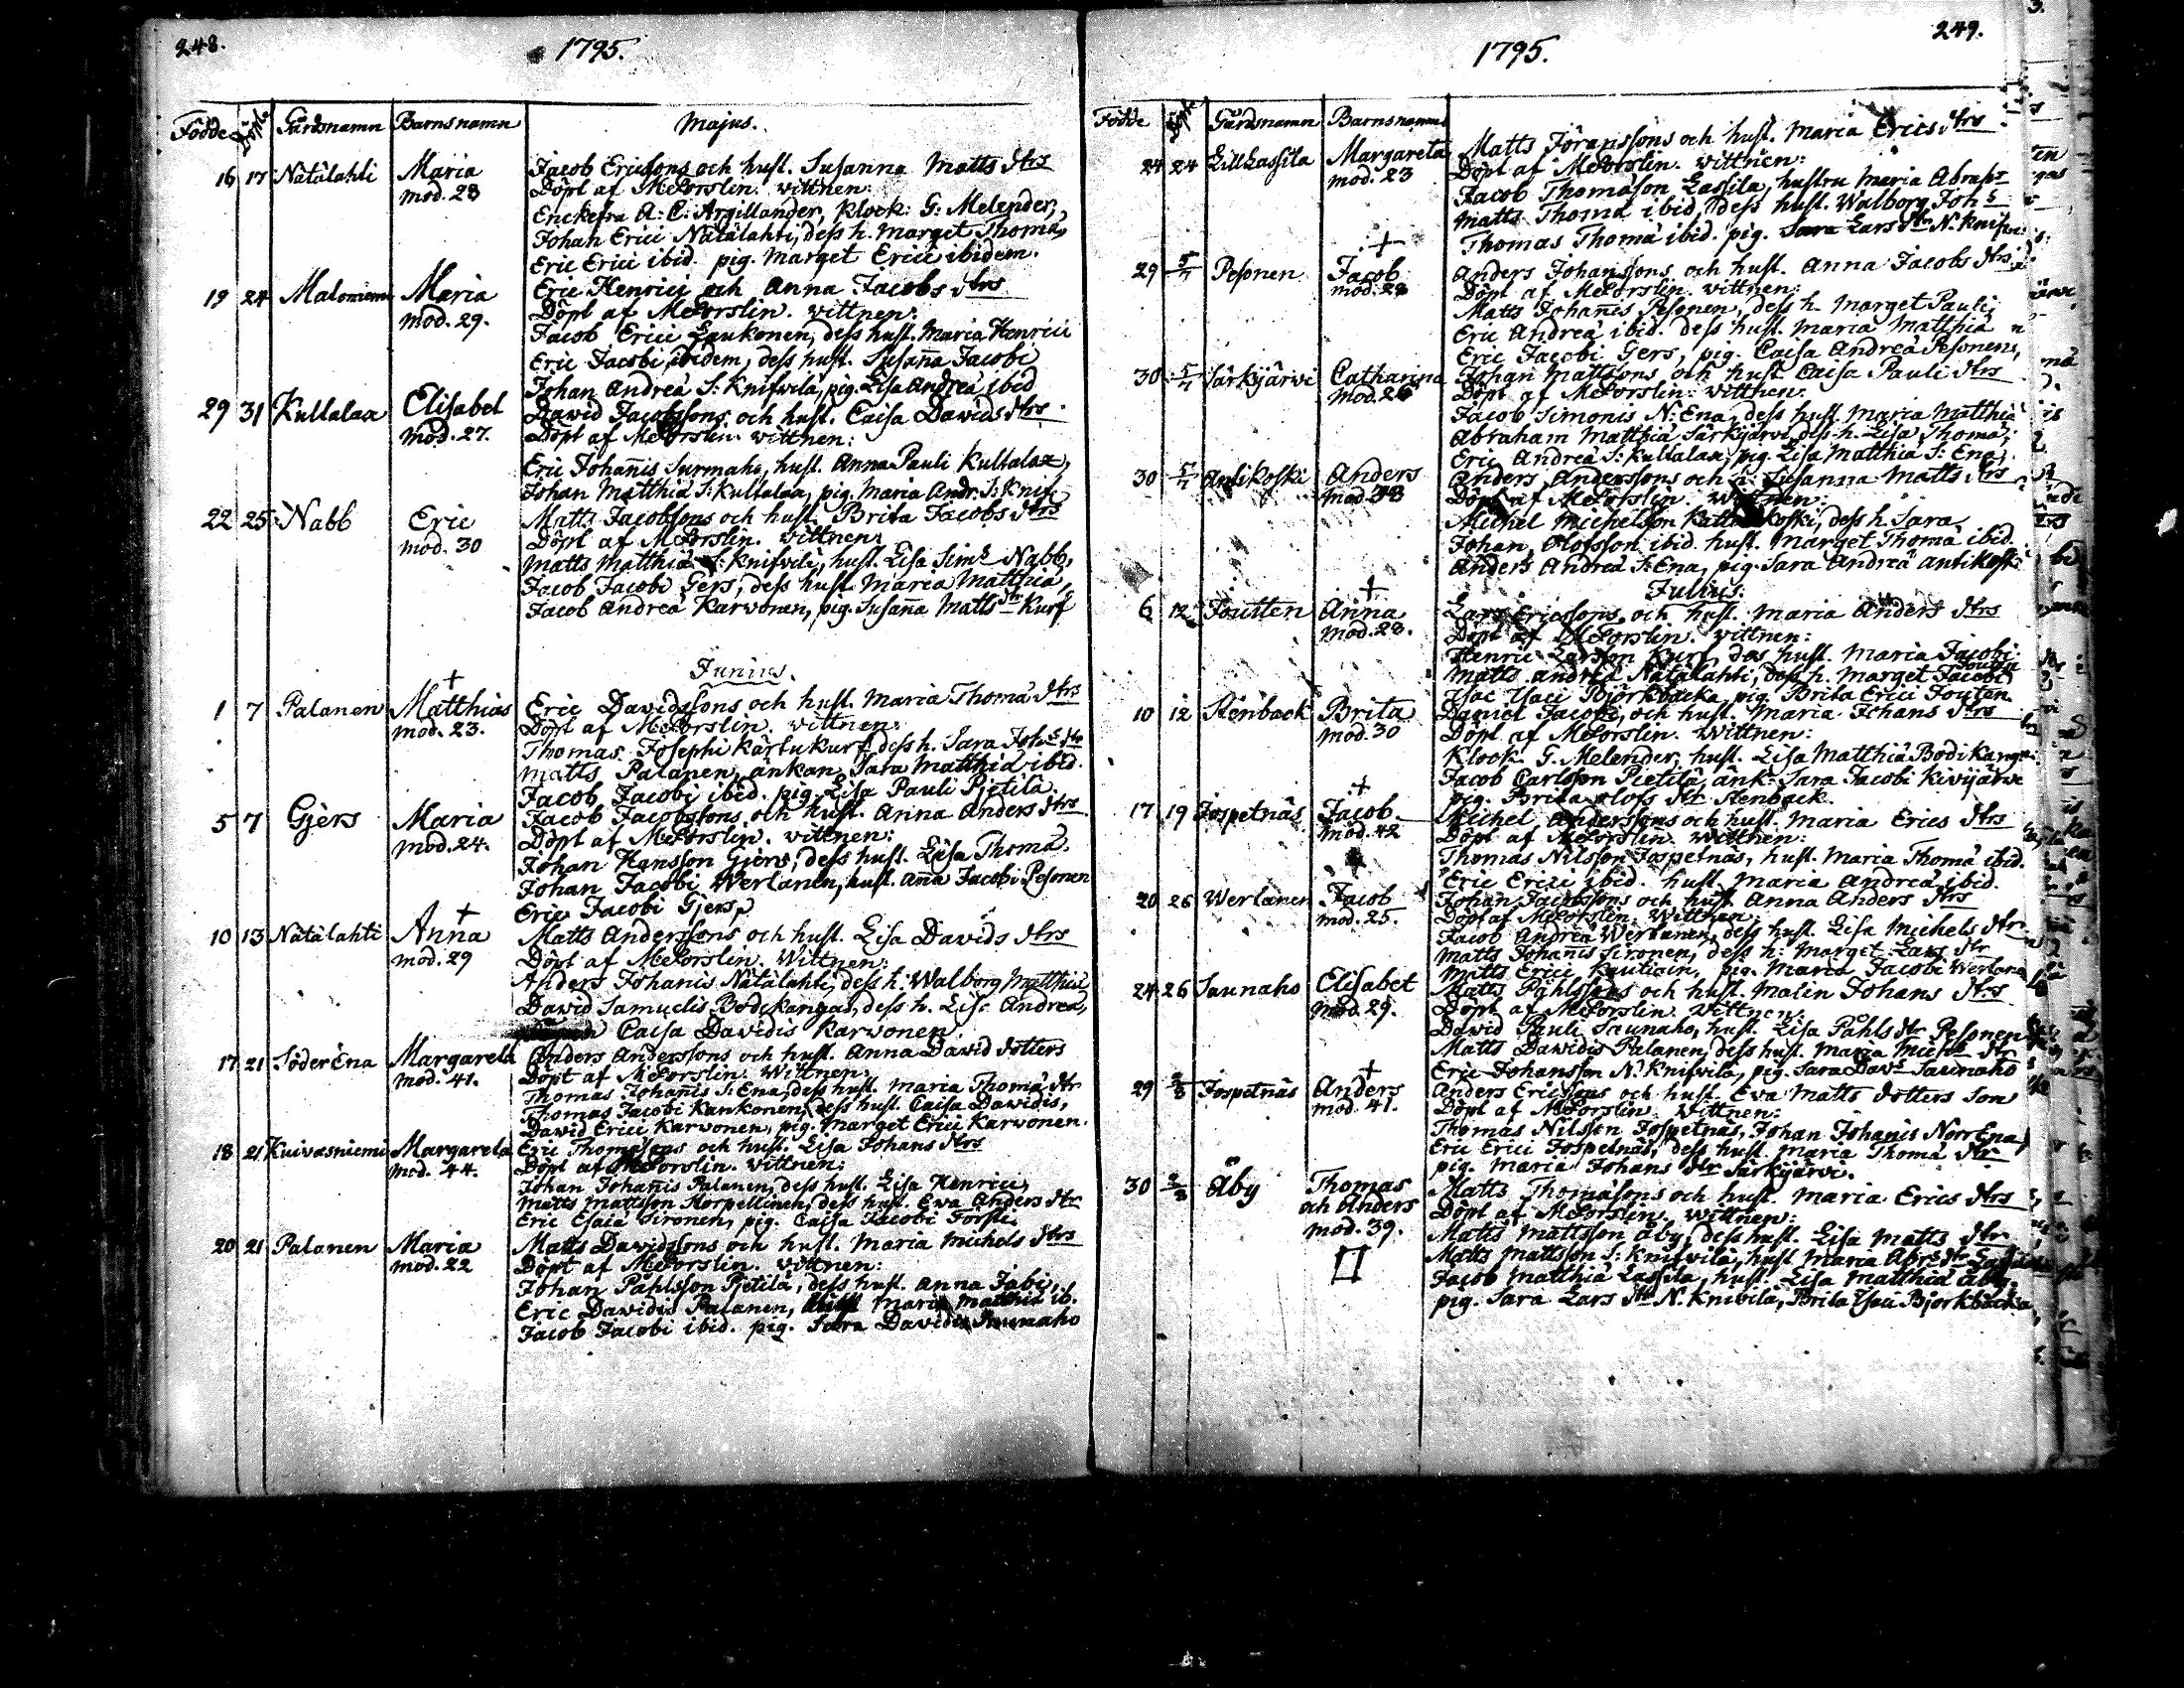 248.
1795.
Födde Döpte Gårdsnamn Barnsnamn Majus.
16 17 Nätälahti Maria Jacob Ericsons och hust. Susanna Matts dtrs
mod. 28 Döpt af MCForslin. vittnen:
Enckefru A: C: Argillander, Klock: G: Melender,
Johan Erici Nätälahti, dess h. Marget Thomä,
Eric Erici ibid. pig. Marget Erici ibidem.
19 24 Maloniemi Maria Eric Henrici och Anna Jacobs dtrs
mod. 29. Döpt af MCForslin. vittnen:
Jacob Erici Laukonen, dess hust. Maria Henrici
Eric Jacobi ibidem, dess hust. Susanna Jacobi
Johan Andreä S: Knifvilä, pig. Lisa Andreä ibid
29 31 Kultalaa Elisabet Dawid Jacobssons och hust. Caisa Davids dtrs.
mod. 27. Döpt af MCForslin. vittnen:
Eric Johañis Surmaho, hust. Anna Pauli Kultalaa,
Johan Matthiä S: Kultalaa, pig. Maria Andr. S: Knif
22 25 Nabb Eric Matts Jacobsons och hust. Brita Jacobs dtrs
mod. 30 Döpt af MCForslin. vittnen:
Matts Matthiä S: Knifvilä, hust. Lisa Sims Nabb,
Jacob Jacobi Gers, dess hust Maria Matthiä,
Jacob Andreä Karvonen, pig. Susaña Matts dtr Kurf
Junius.
+
1 7 Palanen Matthias Eric Davidssons och hust. Maria Thomä dtrs
mod. 23. Döpt af MCForslin. vittnen:
Thomas Josephi Kärtukurf dess h. Sara Johs dtr
Matts Palanen, änkan Sara Matthiä ibid.
Jacob Jacobi ibid. pig. Lisa Pauli Pjetilä.
5 7 Gjers Maria Jacob Jacobssons och hust. Anna Anders dtrs
mod. 24. Döpt af MCForslin. vittnen:
Johan Hansson Gjers, dess hust. Lisa Thomä.
Johan Jacobi Werlanen, hust. Aña Jacobi Pesonen
Eric Jacobi Gjers,
+
10 13 Nätälahti Anna Matts Anderssons och hust. Lisa Davids dtrs
mod. 29 Döpt af MCForslin. Wittnen:
Anders Johanis Nätälahti, dess h: Walborg Matthiä
David Samuelis Bodikangas, dess h. Lisa Andreä,
Caisa Davidis Karvonen
17 21 Söder Ena Margareta Anders Anderssons och hust. Anna David dotters
mod. 41. Döpt af MCForslin. Wittnen:
Thomas Johañis S: Ena, dess hust. Maria Thomä dtr
Thomas Jacobi Kankonen, dess hust. Caisa Davidis,
David Erici Karvonen, pig. Marget Erici Karvonen.
18 21 Kuivasniemi Margareta Eric Thomäsons och hust. Lisa Johans dtrs
mod. 44. Döpt af MCForslin. vittnen:
Johan Johañis Palanen, dess hust. Lisa Henrici,
Matts Mattsson Horpellinen, dess hust. Eva Anders dtr
Eric Esaiä Sironen, pig. Caisa Jacobi Torsti.
20 21 Palanen Maria Matts Davidssons och hust. Maria Michels dtrs
mod. 22 Döpt af MCForslin. vittnen:
Johan Påhlsson Pjetilä, dess hust. Anna Jabi,
Eric Davidis Palanen, hust Maria Matthiä ib.
Jacob Jacobi ibid. pig. Sara Davidis Saunaho
249.
1795.
Födde Döpt Gårdsnamn Barnsnamn
24 24 Lillkassila Margareta Matts Jöranssons och hust. Maria Erics dtrs
mod. 23 Döpt af MCForslin. vittnen:
Jacob Thomäson Lassila, hustru Maria Abrahs
Matts Thomä ibid, dess hust. Walborg Johs
Thomas Thomä ibid. pig. Sara Lars dtr N. Knifvi
+
29 5/7 Pesonen Jacob Anders Johanssons och hust. Anna Jacobs dtrs
mod. 28 Döpt af MCForslin. vittnen:
Matts Johañis Pesonen, dess h. Marget Pauli,
Eric Andreä ibid. dess hust. Maria Matthiä
Eric Jacobi Gers, pig. Caisa Andreä Pesonen,
30 5/7 Särkijärvi Catharina Johan Mattsons och hust Caisa Pauli dtrs
mod. 26 Döpt af MCForslin. vittnen:
Jacob Simonis N: Ena, dess hust. Maria Matthiä
Abraham Matthiä Särkijärvi, dess h. Lisa Thomä,
Eric Andreä S: Kultalaa, pig. Lisa Matthiä S: Ena,
30 5/7 Antikoski Anders Anders Anderssons och h: Susanna Matts dtrs
mod. 38 Döpt af MCForslin. Wittnen:
Michel Michelson dess h. Sara
Johan Olofsson ibid. hust. Marget Thomä ibid.
Anders Andreä S: Ena, pig. Sara Andreä Antikoski
+ Julius.
6 12 Joutten Anna Lars Ericssons och hust. Maria Anders dtrs
mod. 28. Döpt af MCForslin. vittnen:
Henric Larsson Kurf, des hust. Maria Jacobi
Matts Andreä Nätälahti, dess h. Marget Jacobi
Isac Isaci Björkbacka, pig. Brita Erici Jouten
10 12 Stenback Brita Daniel Jacobs, och hust. Maria Johans dtrs
mod. 30 Döpt af MCForslin. Wittnen:
Klock. G. Melender, hust. Lisa Matthiä Bodikangas
Jacob Carlsson Pietilä, änk. Sara Jacobi Kivijärvi
pig. Brita Olofs dtr Stenback.
+
17 19 Jospetnäs Jacob Michel Anderssons och hust. Maria Erics dtrs
mod. 42 Döpt af MCForslin. Wittnen:
Thomas Nilsson Jospetnäs, hust. Maria Thomä ibid.
Eric Erici ibid. hust Maria Andreä ibid.
20 26 Werlanen Jacob Johan Jacobssons och hust Anna Anders dtrs
mod. 25. Döpt af MCForslin. Wittnen:
Jacob Andreä Werlanen, dess hust. Lisa Michels dtr
Matts Johañis Sironen, dess h: Marget Lars dtr
Matts Erici Kautiain, pig. Maria Jacobi Werlanen
24 26 Saunaho Elisabet Matts Påhlssons och hust. Malin Johans dtrs
mod. 29. Döpt af MCForslin. vittnen:
David Pauli Saunaho, hust. Lisa Påhls dtr Pesonen
Matts Davidis Palanen, dess hust. Maria Michs dtr
Eric Johansson N: Knifvilä, pig. Sara Davs Saunaho
+
29 2/8 Jospetnäs Anders Anders Ericssons och hust. Eva Matts dotters son
mod. 41. Döpt af MCForslin. vittnen:
Thomas Nilsson Jospetnäs, Johan Johañis Norr Ena,
Eric Erici Jospetnäs, dess hust. Maria Thomä dtr
pig. Maria Johans dtr Särkijärvi.
30 2/8 Åby Thomas Matts Thomäsons och hust. Maria Erics dtrs
och Anders Döpt af MCForslin. vittnen:
mod. 39. Matts Mattsson Åby, dess hust. Lisa Matts dtr
Matts Mattsson S: Knifvilä, hust Maria Abrs dtr
Jacob Matthiä Lassila, hust. Lisa Matthiä Åby.
pig. Sara Lars dtr N. Knivilä, Brita Isaci Björkbacka